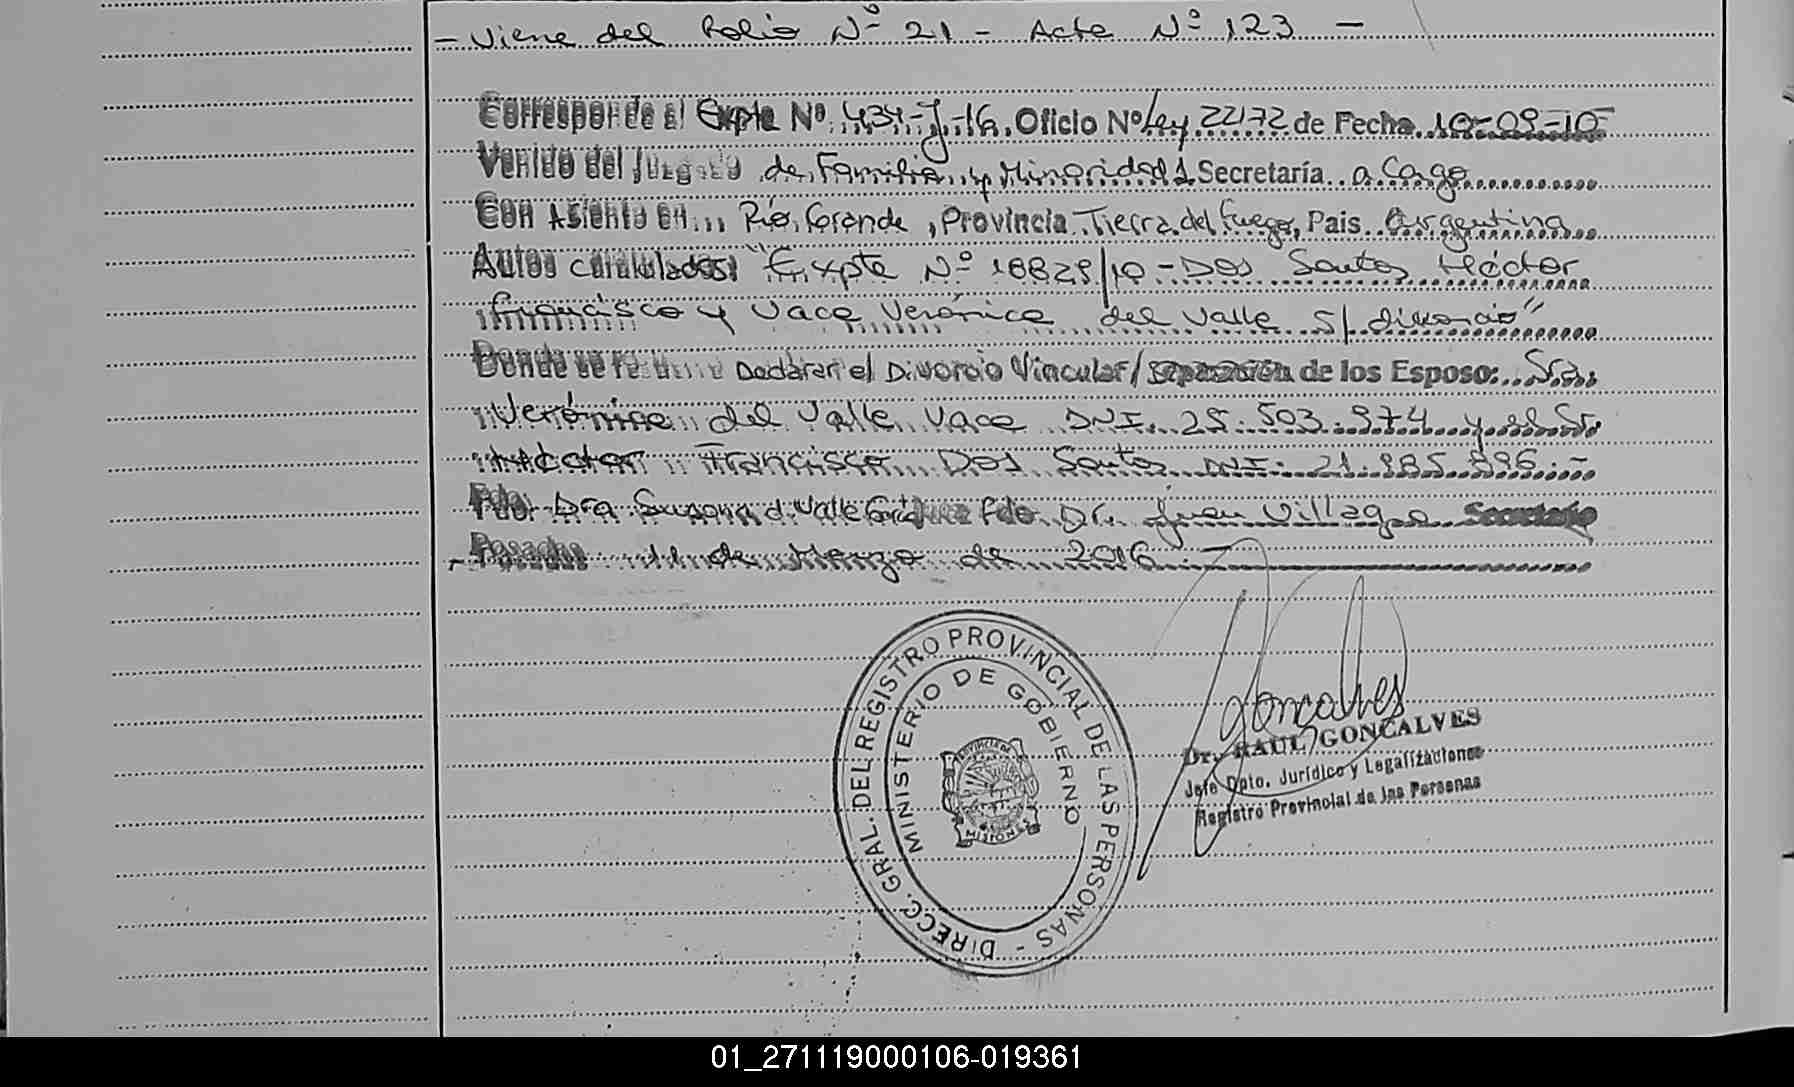 - Viene del Folio Nº 21 - Acta Nº 123 -
Corresponde al Expte Nº 434-J-16. Oficio Nº Ley 22172 de Fecha 10-09-10
Venido del Juzgado de Familia y Minoridad 1 Secretaría a Cargo
Con Asiento en Río Grande, Provincia Tierra del Fuego, Pais Argentina
Autos caratulados: "Expte Nº 18829/10 - Dos Santos Héctor
Francisco y Vace Verónica del Valle s/ divorcio"
Donde se Declaran el Divorcio Vincular/ Separación de los Esposo: Sra.
Verónica del Valle Vace DNI. 25.503.974 y el Sr.
Hector Francisco Dos Santos DNI: 21.985.896.-
Fdo. Dra Susana d. Valle Fdo. Dr. Juan Villega Secretario
- Posadas 11 de Marzo de 2016 -
DIRECC. GRAL. DEL REGISTRO PROVINCIAL DE LAS PERSONAS -
MINISTERIO DE GOBIERNO
PROVINCIA DE
MISIONES
Goncalves
Dr. RAUL GONCALVES
Jefe Dpto. Jurídico y Legalizaciones
Registro Provincial de las Personas
01_271119000106-019361